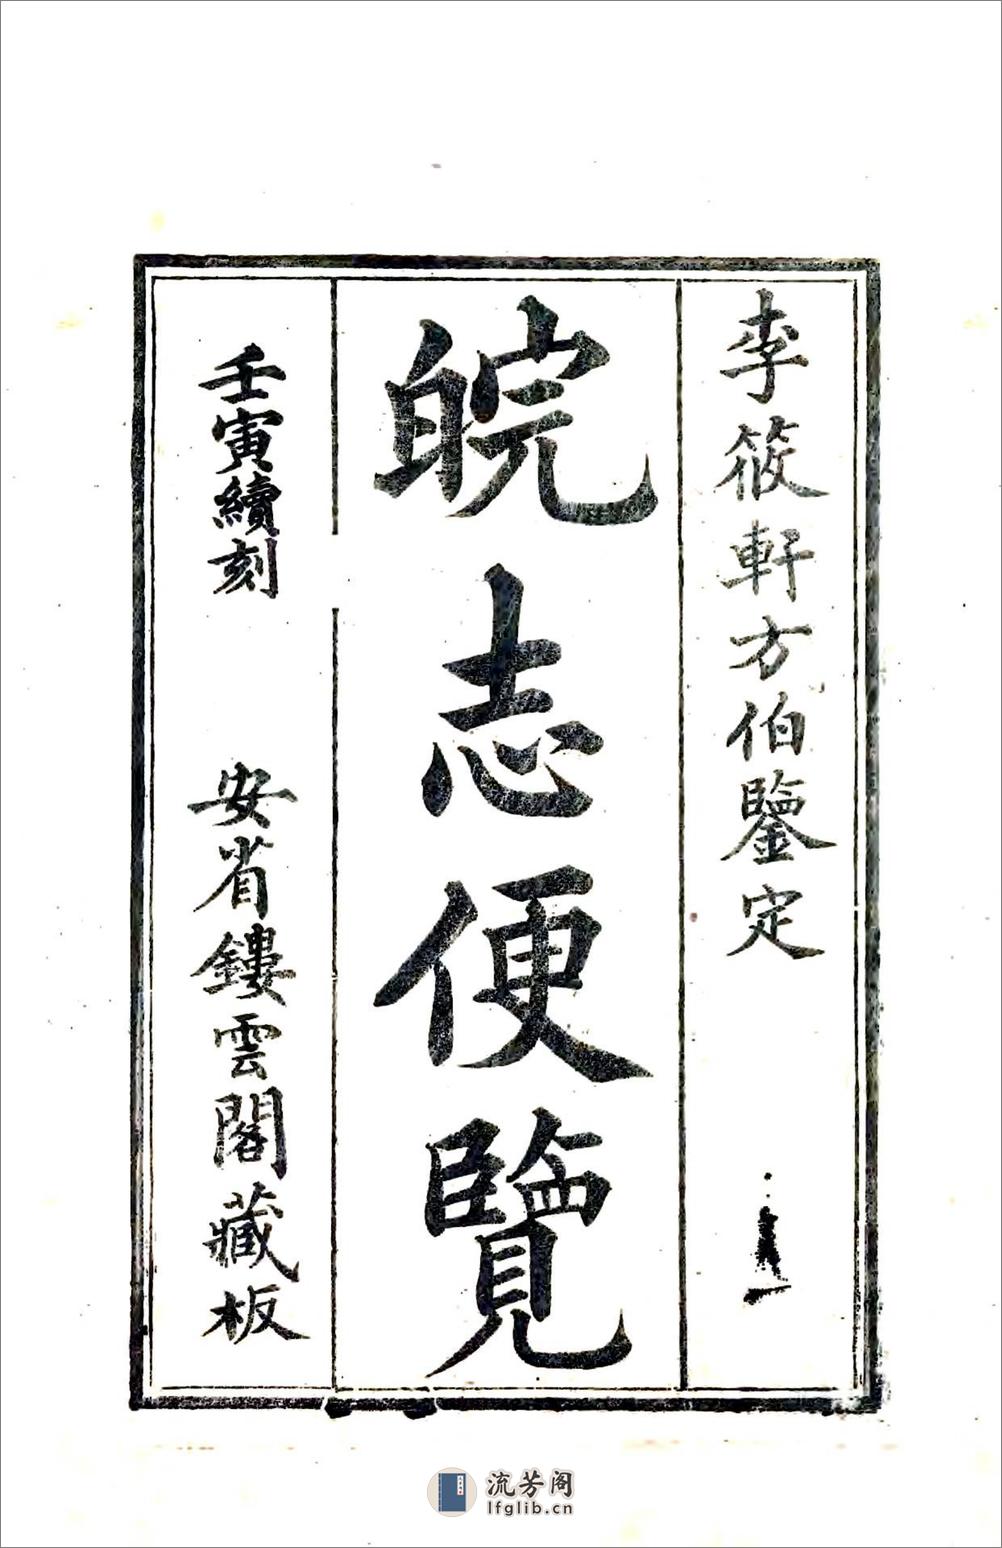 李筱軒方伯鑒定
皖志便覽
壬寅續刻
安省鏤雲閣藏板
流芳阁
lfglib.cn